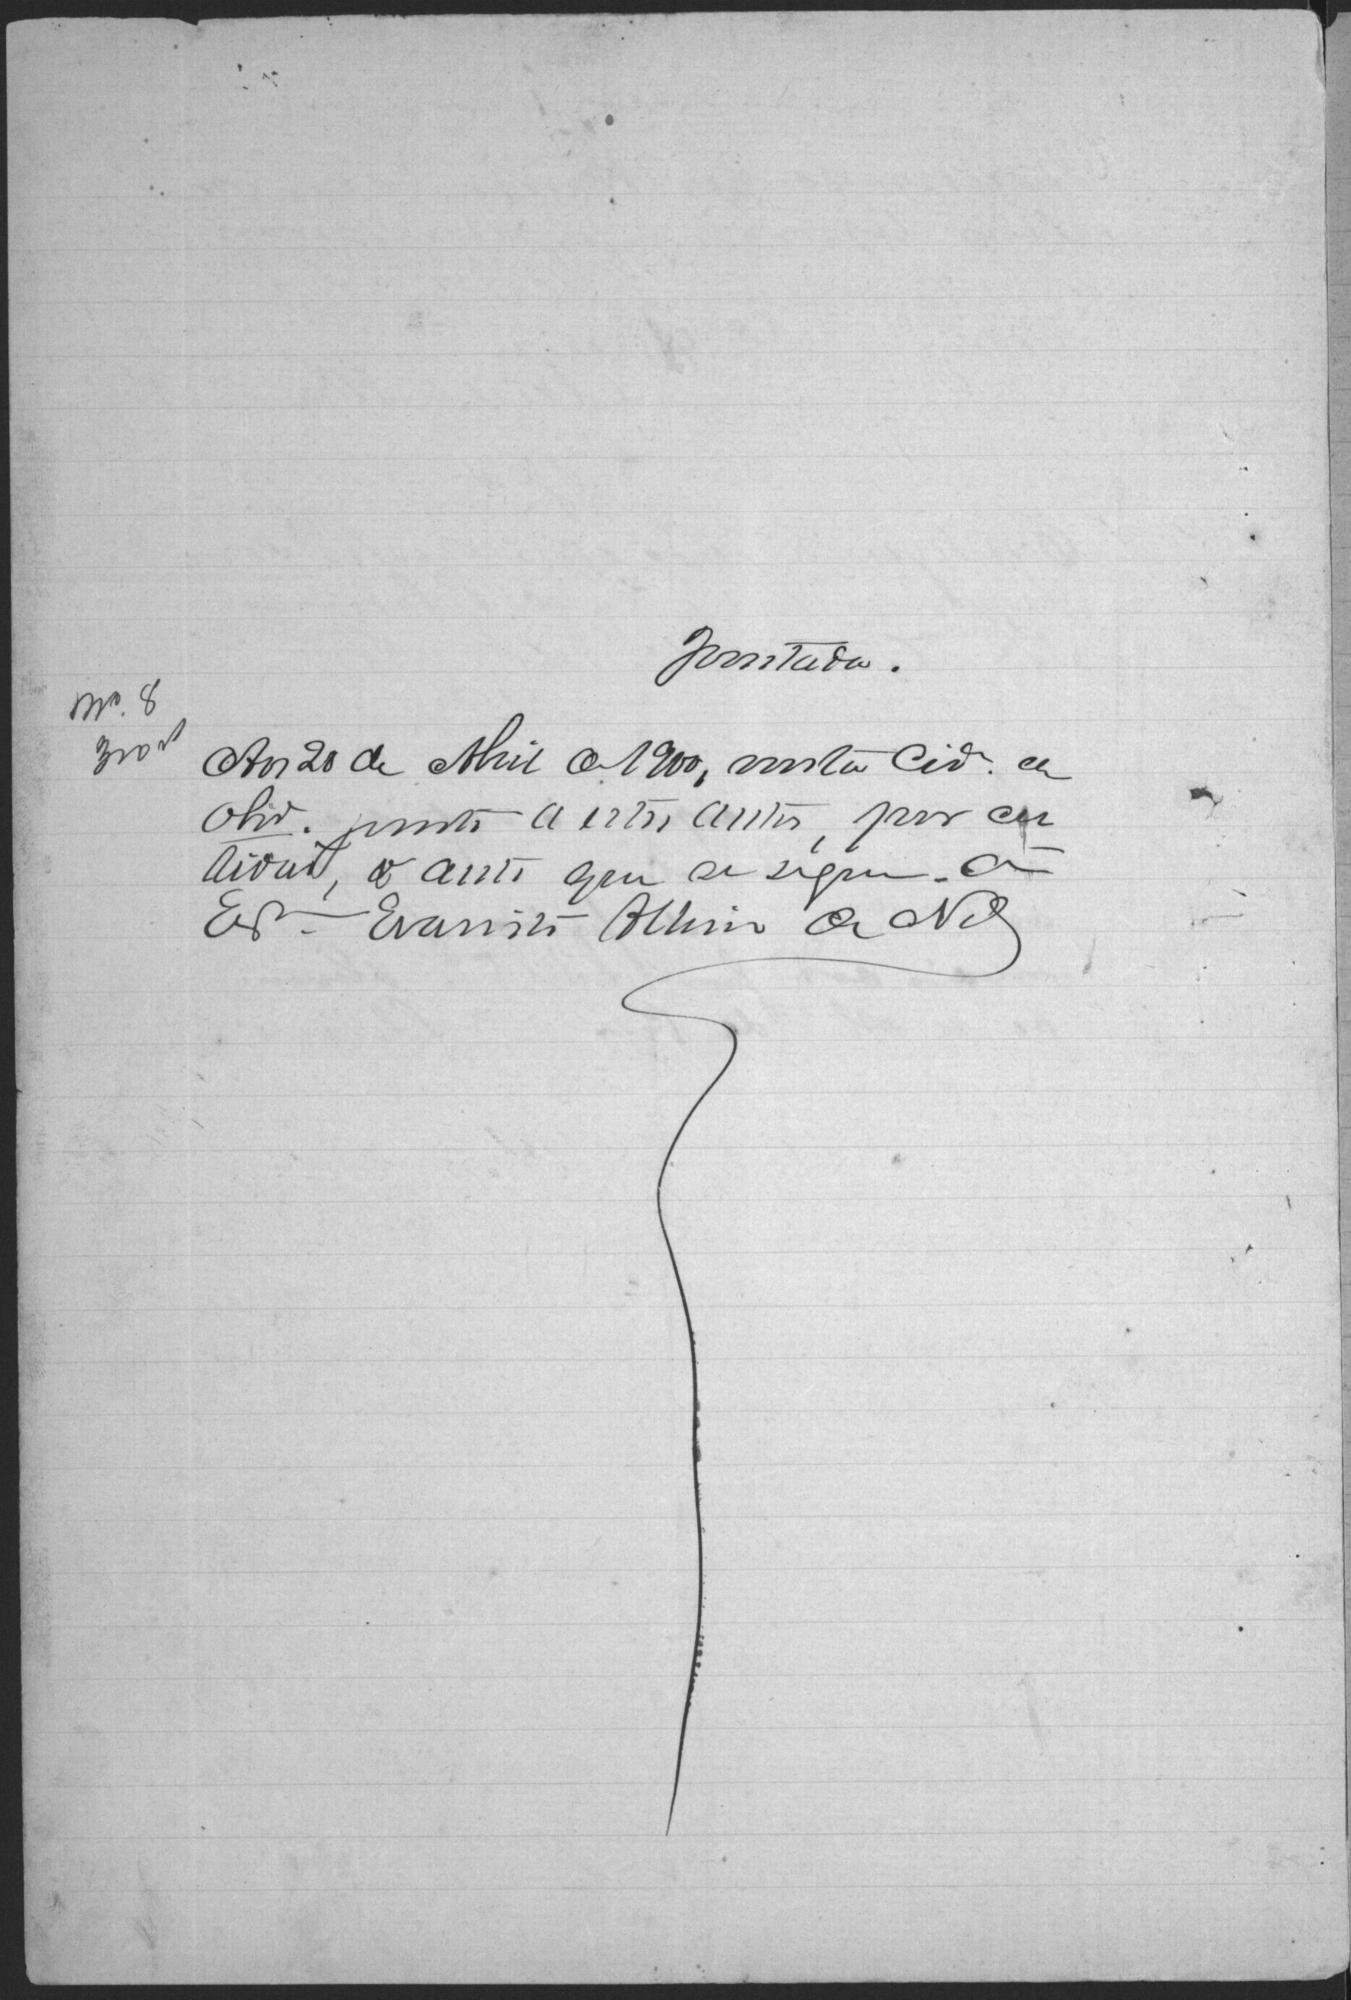 Juntada.
Nº. 8
Aos 20 de Abril de 1900, nesta Cid.e de
Oliv.ra junto a estes autos, por cer
tidão, o auto que se segue. O
Esc.m Evaristo Albino de